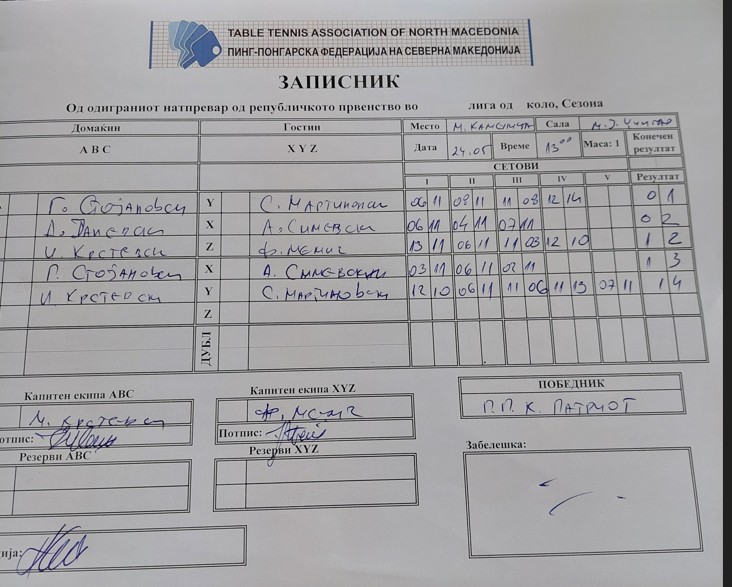 TABLE TENNIS ASSOCIATION OF NORTH MACEDONIA
ПИНГ-ПОНГАРСКА ФЕДЕРАЦИЈА НА СЕВЕРНА МАКЕДОНИЈА
ЗАПИСНИК
Од одиграниот натпревар од републичкото првенство во лига од коло, Сезона
Домаќин Гостин Место М. Каменица Сала
A B C X Y Z Дата 24.05 Време 13 00 Маса: 1 Конечен резултат
СЕТОВИ
I II III IV V Резултат
Г. Стојановски Y С. Мартиновски 06 11 08 11 11 08 12 14 0 1
Д. Даневски X А. Симевски 06 11 04 11 07 11 0 2
И. Крстевски Z Ф. Мемиг 13 11 06 11 11 03 12 10 1 2
Г. Стојановски X А. Симевски 03 11 06 11 02 11 1 3
И. Крстевски Y С. Мартиновски 12 10 06 11 11 06 11 13 07 11 1 4
Z
ДУБЛ
Капитен екипа ABC Капитен екипа XYZ ПОБЕДНИК
И. Крстевски П.П.К. ПАТРИОТ
отпис: Потпис:
Резерви ABC Резерви XYZ Забелешка:
ија: